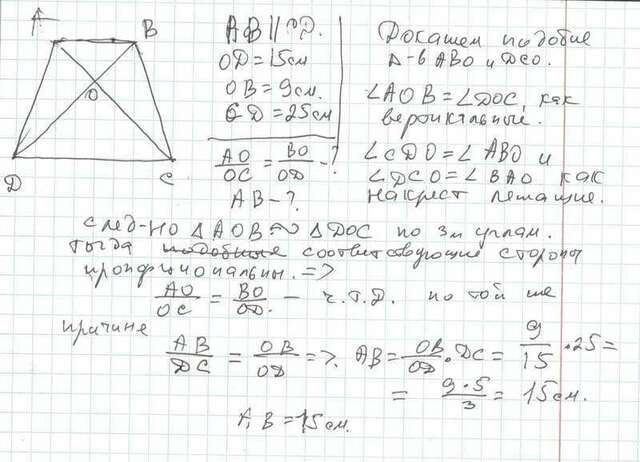 A
B
O
D
C
AB || CD.
OD = 15см
OB = 9см.
CD = 25см
AO/OC = BO/OD - ?
AB - ?
Докажем подобие
Δ-в ABO и DCO.
∠AOB = ∠DOC, как
вертикальные.
∠CDO = ∠ABO и
∠DCO = ∠BAO как
накрест лежащие.
след-но ΔAOB ∾ ΔDOC по 3м углам.
тогда подобные соответствующие стороны
пропорциональны. =>
AO/OC = BO/OD. - ч.т.д. по той же
причине
AB/DC = OB/OD =>. AB = OB/OD · DC = 9/15 · 25 =
= 9·5/3 = 15см.
AB = 15см.